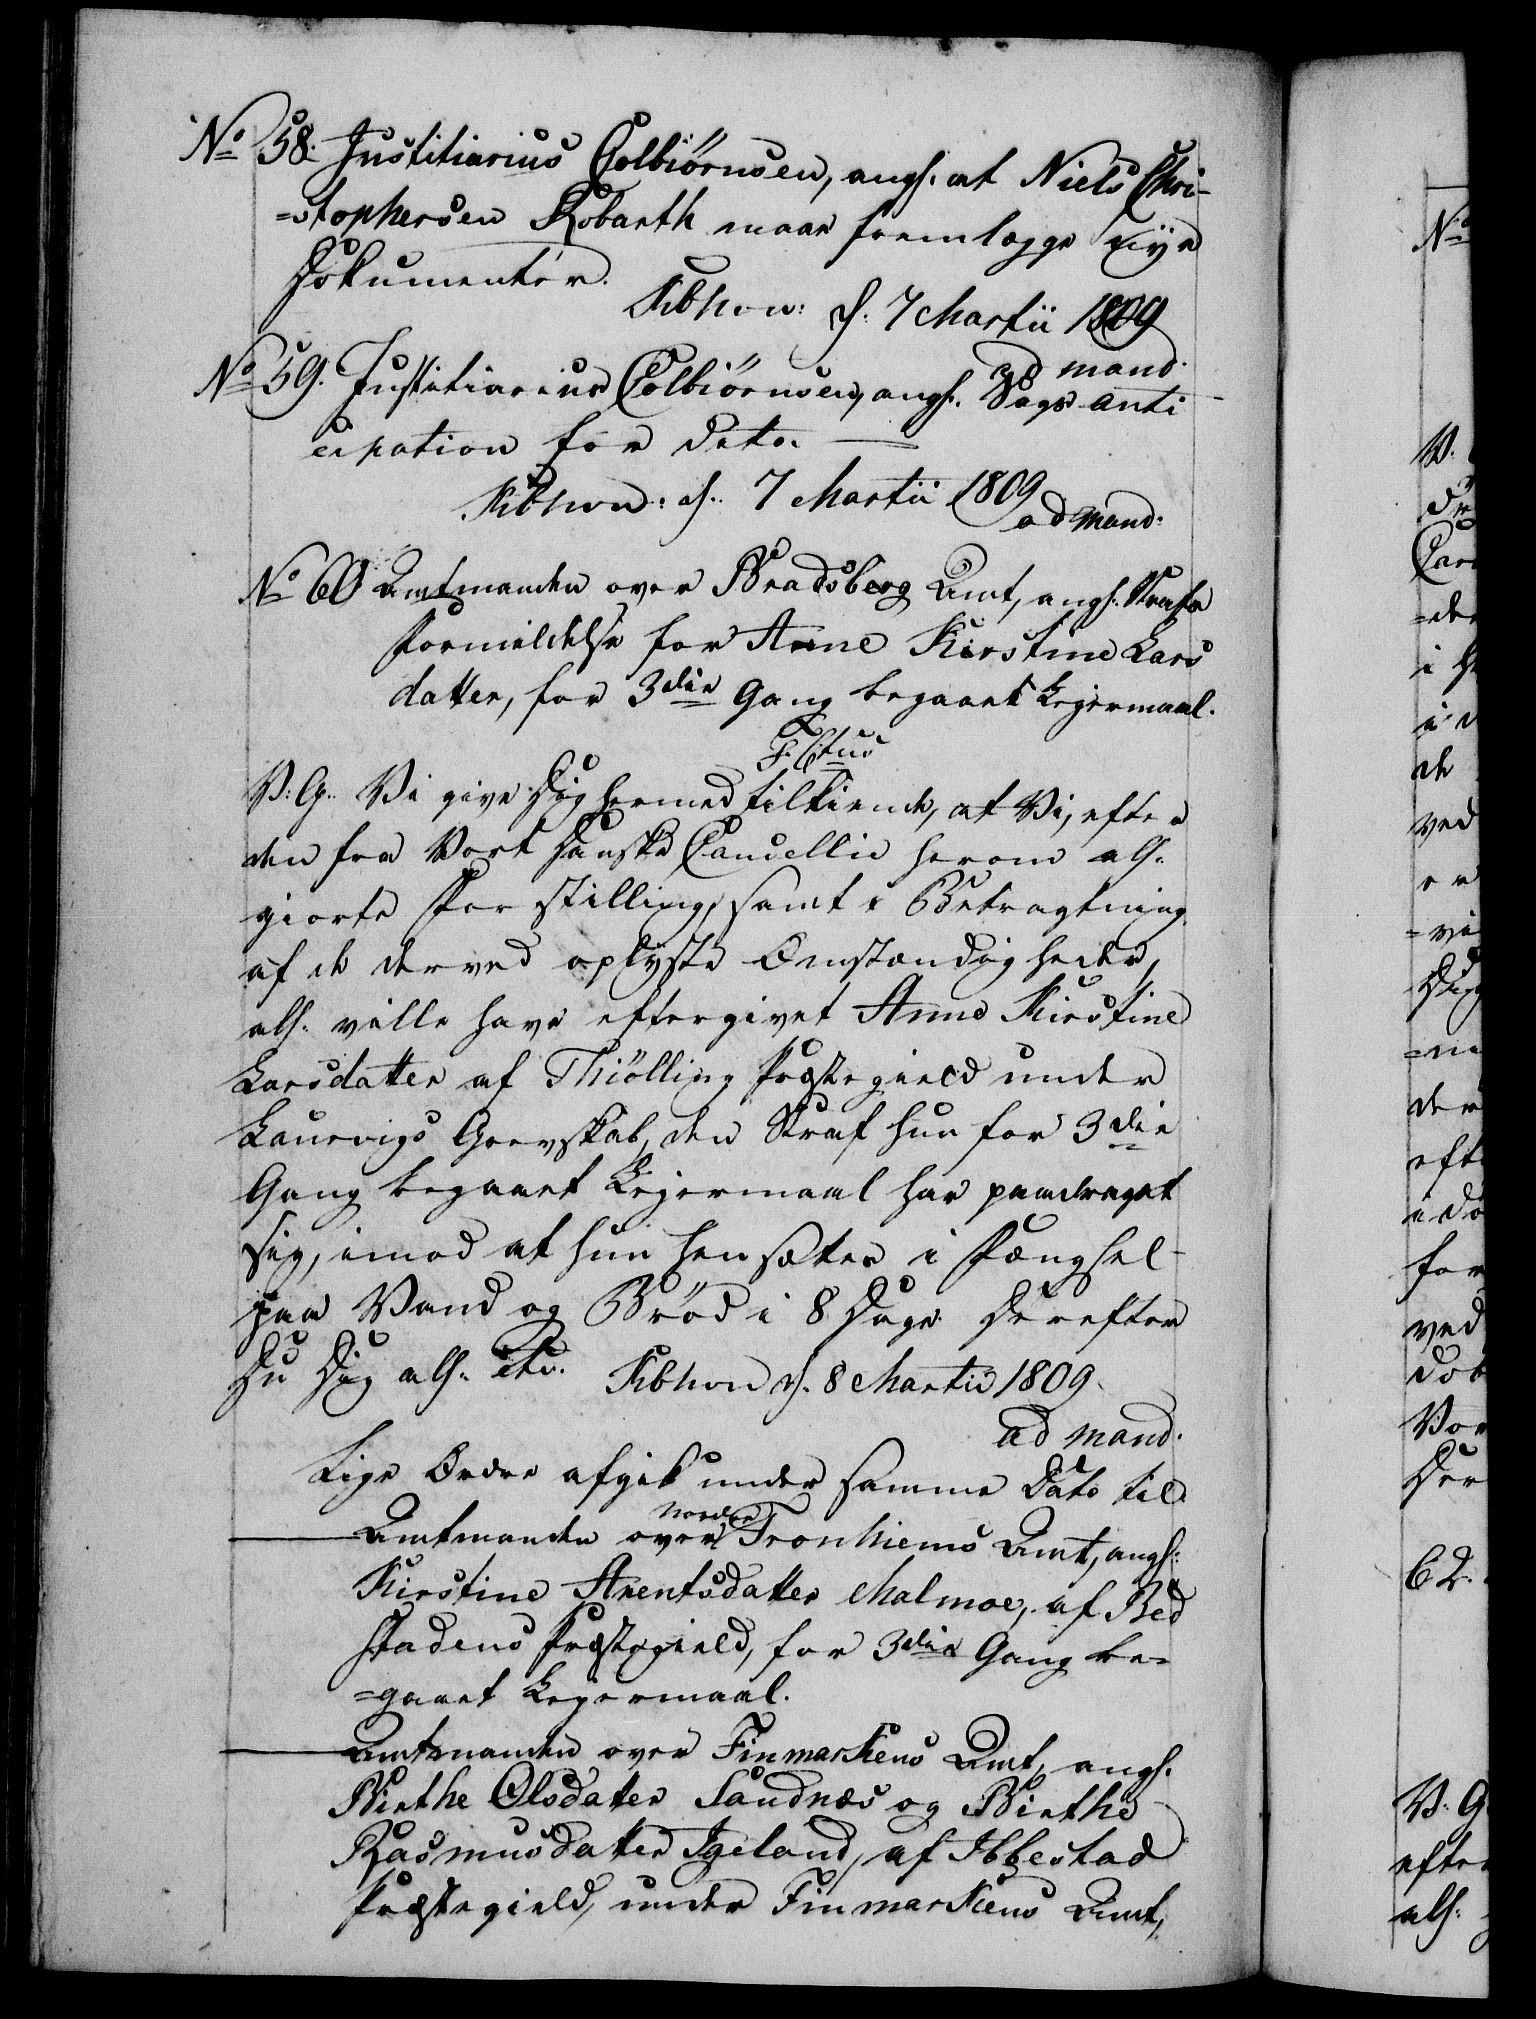 No 58. Justitiarius Colbiörnsen, angl. at Niels Chri-
=stophersen Robarth maae fremlægge Nye
Dokumenter.
Kbhvn: d. 7 Martii 1809
ad mand.
No 59. Justitiarius Colbiörnsen, angl. Sags anti
cipation for dito.
Kbhvn: d. 7 Martii 1809
ad mand.
No 60 Amtmanden over Bradsberg Amt, angl. Straffe
Formildelse for Anne Kirstine Lars
datter, for 3die Gang begaaet Lejermaal.
V. G. Vi give Dig hermed tilkiende, at Vi, efter
den fra Vort Danske Cancellie herom all.
giorte Forestilling, samt i Betragtning
af de derved oplyste Omstændigheder,
all. ville have eftergivet Anne Kirstine
Larsdatter af Thiölling Præstegield under
Laurvigs Grevskab, den Straf hun for 3die
Gang begaaet Lejermaal har paadraget
sig, imod at hun hensættes i Fængsel
paa Vand og Bröd i 8 Dage. Derefter
Du Dig all. etc. Kbhvn d. 8 Martii 1809.
ad mand.
Lige Ordre afgik under samme Dato til
Amtmanden over Nordre Tronhiems Amt, angl.
Kirstine Arentsdatter Malmoe, af Bed
stadens Præstegield, for 3die Gang be=
=gaaet Lejermaal.
Amtmanden over Finmarkens Amt, angl.
Birthe Olsdatter Sandnæs og Birthe
Rasmusdatter Igeland, af Ibbestad
Præstegield, under Finmarkens Amt,